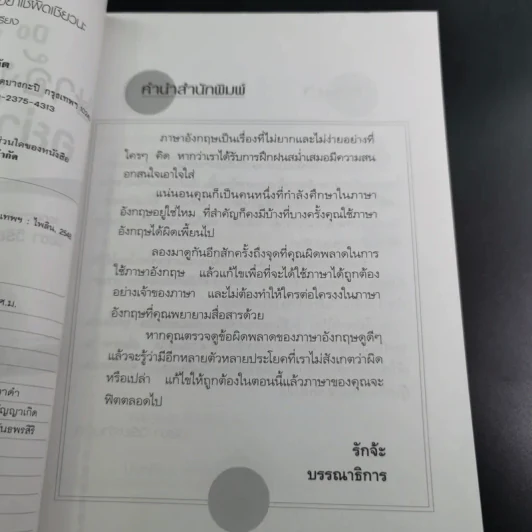 คำนำสำนักพิมพ์
ภาษาอังกฤษเป็นเรื่องที่ไม่ยากและไม่ง่ายอย่างที่
ใครๆ คิด หากว่าเราได้รับการฝึกฝนสม่ำเสมอมีความสน
อกสนใจเอาใจใส่
แน่นอนคุณก็เป็นคนหนึ่งที่กำลังศึกษาในภาษา
อังกฤษอยู่ใช่ไหม ที่สำคัญก็คงมีบ้างที่บางครั้งคุณใช้ภาษา
อังกฤษได้ผิดเพี้ยนไป
ลองมาดูกันอีกสักครั้งถึงจุดที่คุณผิดพลาดในการ
ใช้ภาษาอังกฤษ แล้วแก้ไขเพื่อที่จะได้ใช้ภาษาได้ถูกต้อง
อย่างเจ้าของภาษา และไม่ต้องทำให้ใครต่อใครงงในภาษา
อังกฤษที่คุณพยายามสื่อสารด้วย
หากคุณตรวจดูข้อผิดพลาดของภาษาอังกฤษดูดีๆ
แล้วจะรู้ว่ามีอีกหลายตัวหลายประโยคที่เราไม่สังเกตว่าผิด
หรือเปล่า แก้ไขให้ถูกต้องในตอนนี้แล้วภาษาของคุณจะ
ฟิตตลอดไป
รักจ้ะ
บรรณาธิการ
เรียง
กรุงเทพฯ
-2375-4313
ส่วนใดของหนังสือ
เทพฯ : ไพลิน, 254
ศ.ม.